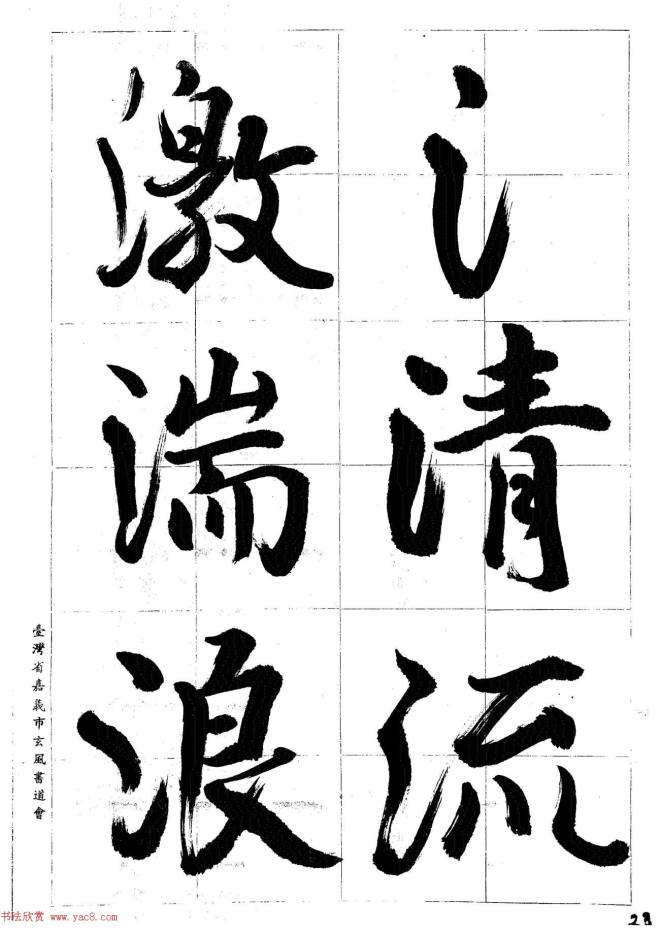 氵清流
激湍浪
臺灣省嘉義市玄風書道會
书法欣赏 www.yac8.com
28